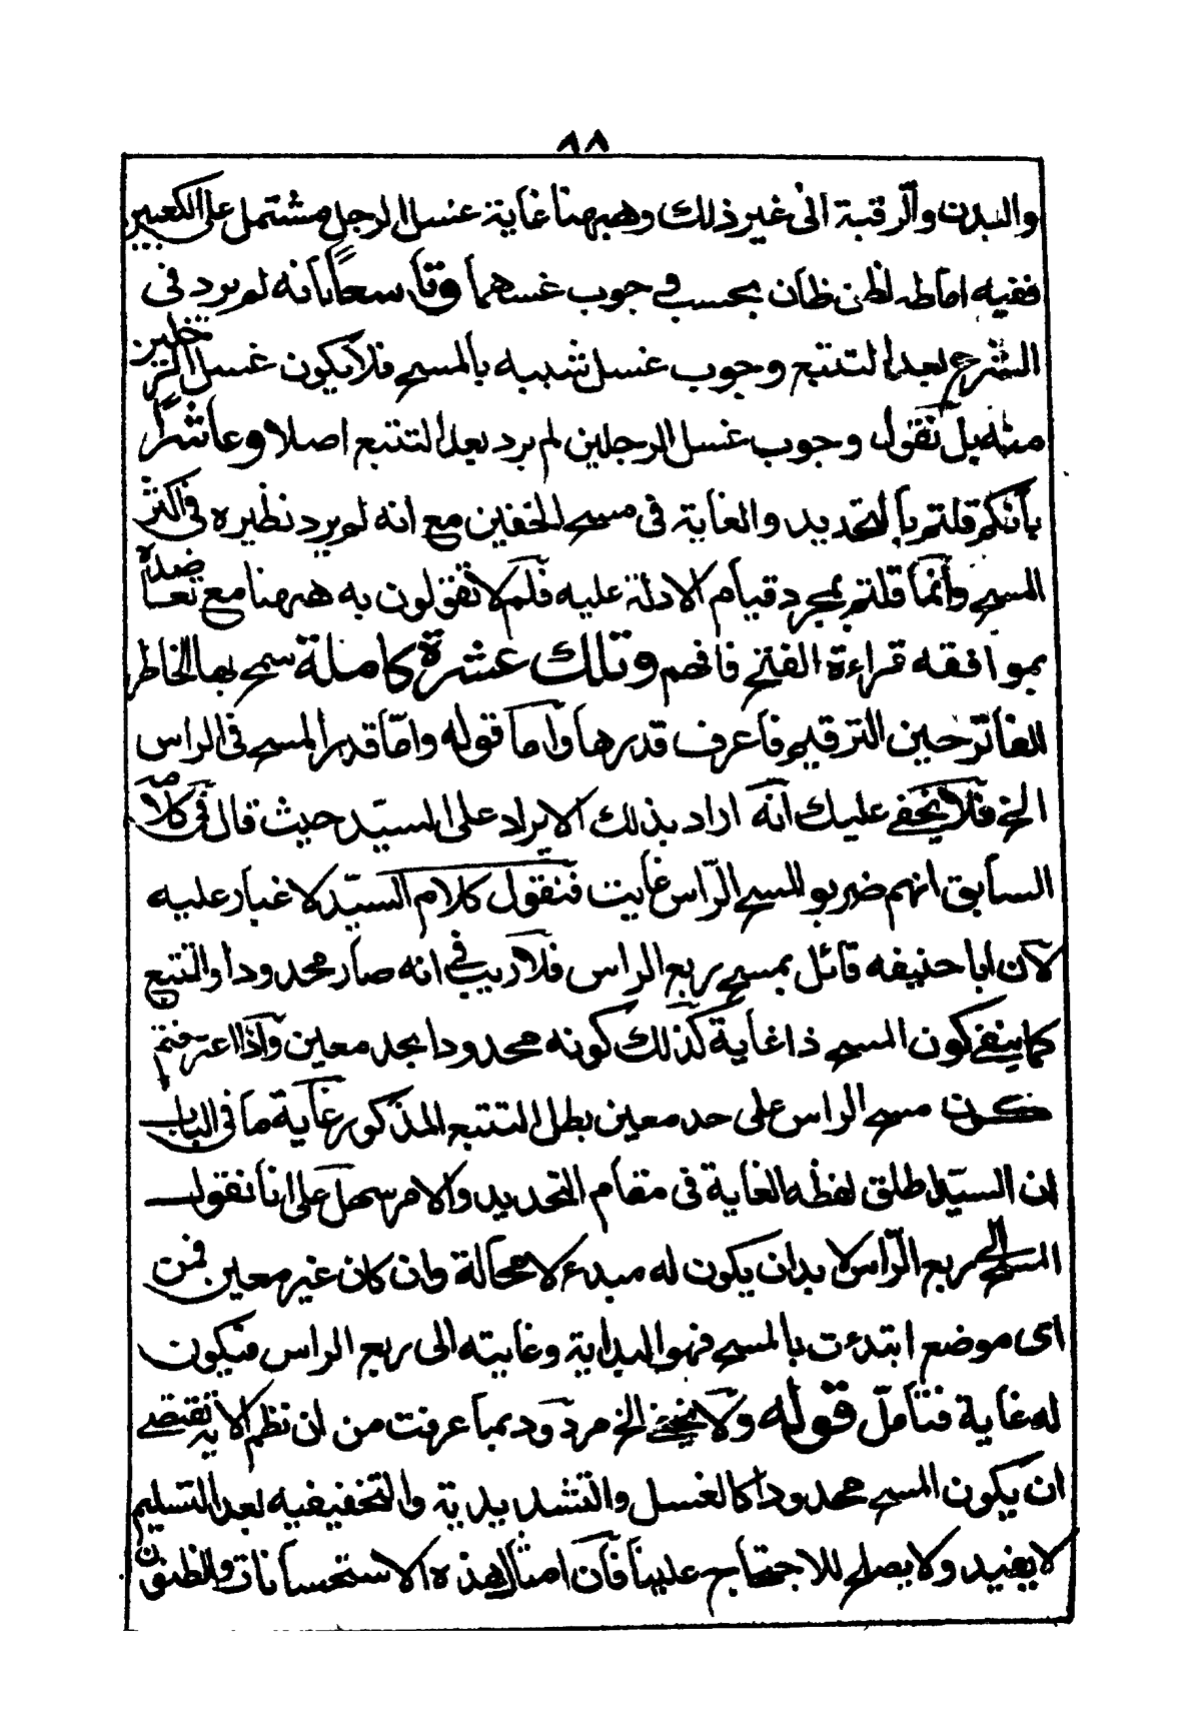 ٩٨
والبدن والرقبة الى غير ذلك وههنا غاية غسل الرجل مشتمل على الكعبين
ففيه اماطه لظن ظان بحسب فى جوب غسهما وتاسعا بانه لم يرد فى
الشرع بعد التتبع وجوب غسل شبيه بالمسح فلا يكون غسل الرجلين
مثله بل نقول وجوب غسل الرجلين لم يرد بعد التتبع اصلا وعاشرا
بانكم قلتم بالتحديد والغاية فى مسح الخفين مع انه لم يرد نظيره فى اكثر
المسح وانما قلتم بمجرد قيام الادلة عليه فلم لا تقولون به ههنا مع تعاضده
بموافقه قراءة الفتح فافهم وتلك عشرة كاملة سمح بها الخاطر
الفاتر حين الترقيم فاعرف قدرها واما قوله واما قدر المسح فى الراس
الخ فلا يخفى عليك انه اراد بذلك الايراد على السيد حيث قال فى كلامه
السابق انهم ضربو للمسح الراس غايت فنقول كلام السيد لا غبار عليه
لان ابا حنيفه قائل بمسح ربع الراس فلا ريب فى انه صار محدودا والتتبع
كما ينفى كون المسح ذا غاية كذلك كونه محدودا بحد معين واذا اعترفتم
بكون مسح الراس على حد معين بطل التتبع المذكور غاية ما فى الباب
ان السيد اطلق لفظه الغاية فى مقام التحديد والامر سهل على انا نقول
المسح الى ربع الراس لا بد ان يكون له مبدء لا محالة وان كان غير معين فمن
اى موضع ابتدءت بالمسح فهو البداية وغايته الى ربع الراس فيكون
له غاية فتامل قوله ولا يخفى الخ مردود بما عرفت من ان نظم الاية تقتضى
ان يكون المسح محدودا كالغسل والتشديدية والتخفيفيه بعد التسليم
لا يفيد ولا يصلح للاجتجاج علينا فان امثال هذه الاستحسانات والظنون